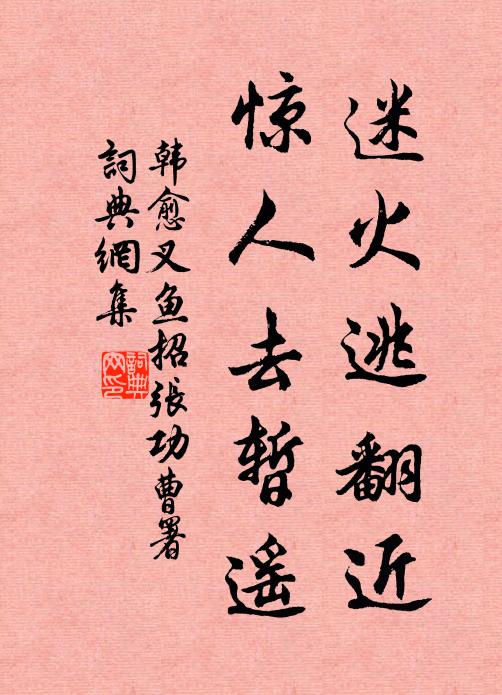 迷火逃翻近
惊人去暂遥
韩愈叉鱼招张功曹署
词典網集
詞典網印